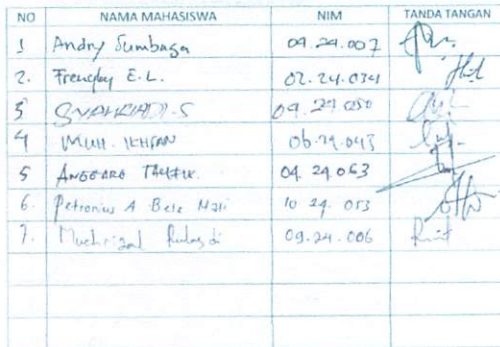 NO NAMA MAHASISWA NIM TANDA TANGAN
1 Andry Sumbaga 09.24.007
2. E.L. 02.24.034
3 SYAHRIADI.S 09.24 050
4 MUH. IKHSAN 06.24.043
5 ANGGARA TAUFIK. 04.24.063
6. Petronius A Bere Mali 10 24. 053
7. Muchrizal 09.24.006